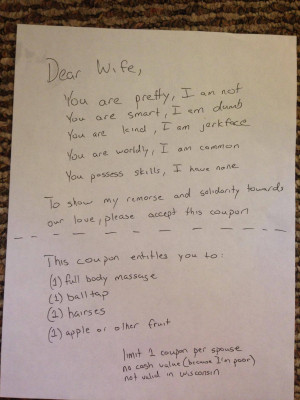 Dear Wife,
You are pretty, I am not
You are smart, I am dumb
You are kind, I am jerkface
You are worldly, I am common
You possess skills, I have none
To show my remorse and solidarity towards
our love, please accept this coupon
This coupon entitles you to:
(1) full body massage
(1) ball tap
(2) hairses
(1) apple or other fruit
limit 1 coupon per spouse
no cash value (because I'm poor)
not valid in wisconsin